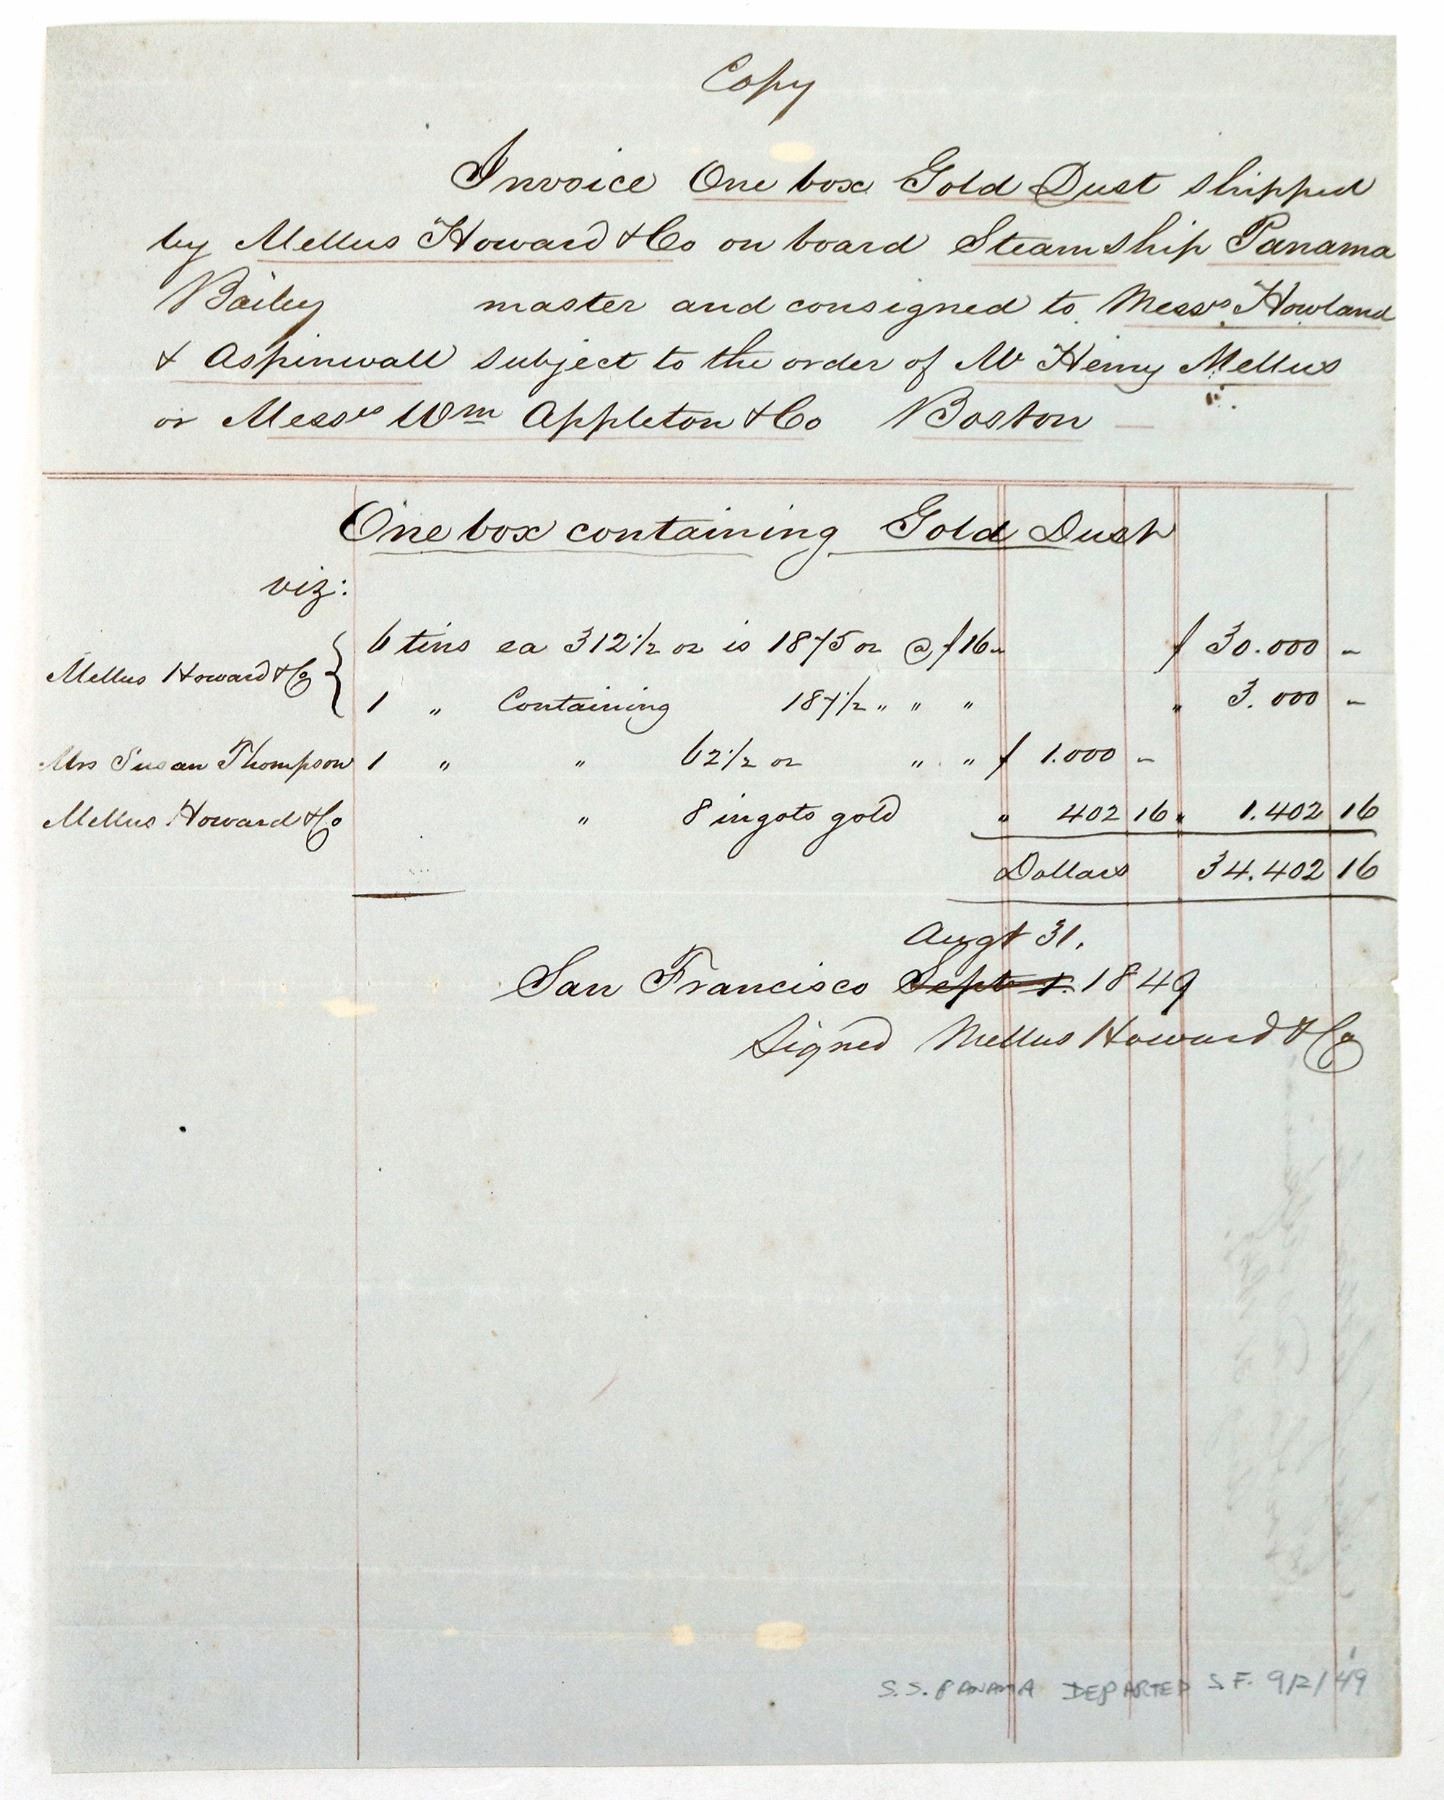 Copy
Invoice One box Gold Dust shipped
by Mellus Howard & Co on board Steamship Panama
Bailey master and consigned to Messrs Howland
& Aspinwall subject to the order of Mr Henry Mellus
or Messrs Wm Appleton & Co Boston —
One box containing Gold Dust
viz:
Mellus Howard & Co { 6 tins ea 312 1/2 oz is 1875 oz @ $16 - $ 30.000 -
1 " Containing 187 1/2 " " " " 3.000 -
Mrs Susan Thompson 1 " " 62 1/2 oz " " $ 1.000 -
Mellus Howard & Co " 8 ingots gold " 402 16 " 1.402 16
Dollars 34.402 16
Augt 31.
San Francisco Sept 1. 1849
Signed Mellus Howard & Co
S.S. PANAMA DEPARTED S.F. 9/2/49